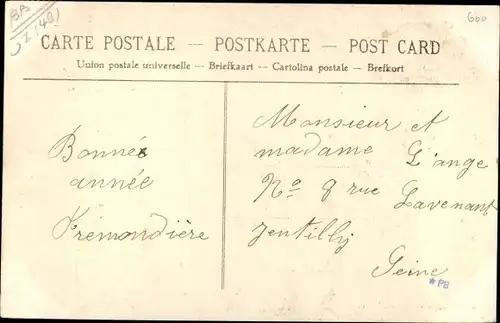 BB
660
CARTE POSTALE — POSTKARTE — POST CARD
Union postale universelle — Briefkaart — Cartolina postale — Brefkort
Bonne
année
Frémondière
Monsieur et
madame L'ange
No 8 rue Lavenant
Jentilly
Seine
*PB